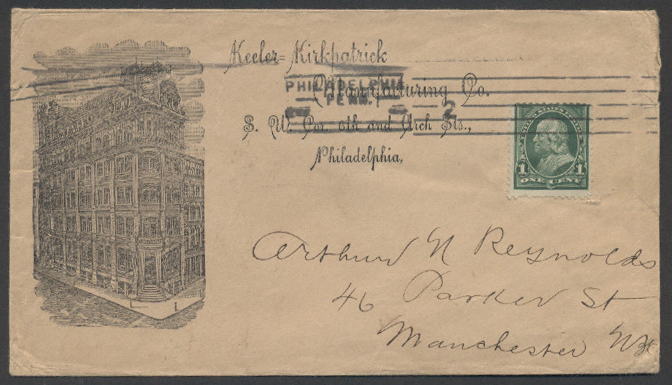 Keeler-Kirkpatrick
Manufacturing Co.
PHILADELPHIA
PENN.
2
S. W. Cor. 6th and Arch Sts.,
Philadelphia,
1 1
ONE CENT
Arthur N Reynolds
46 Parker St
Manchester NH